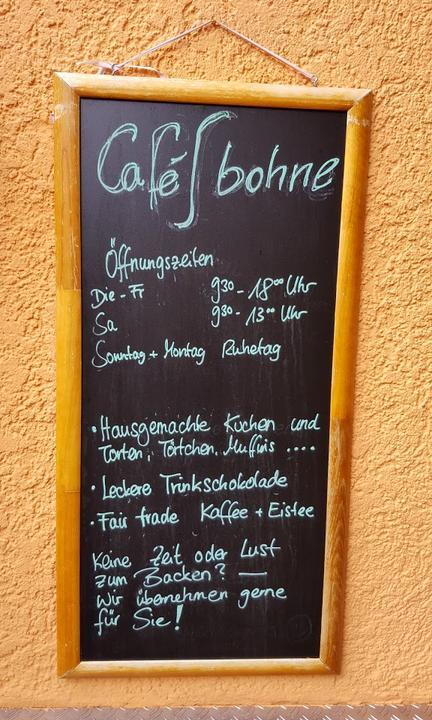 Café bohne
Öffnungszeiten
Die - Fr 9³⁰ - 18⁰⁰ Uhr
Sa 9³⁰ - 13⁰⁰ Uhr
Sonntag + Montag Ruhetag
• Hausgemachte Kuchen und
Torten, Törtchen, Muffins ....
• Leckere Trinkschokolade
• Fair trade Kaffee + Eistee
Keine Zeit oder Lust
zum Backen? —
Wir übernehmen gerne
für Sie!